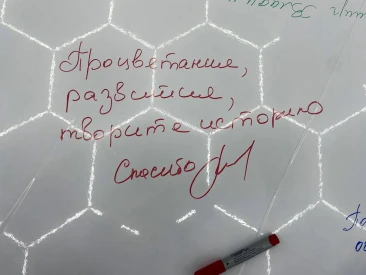 Процветания,
развития,
творите историю
Спасибо